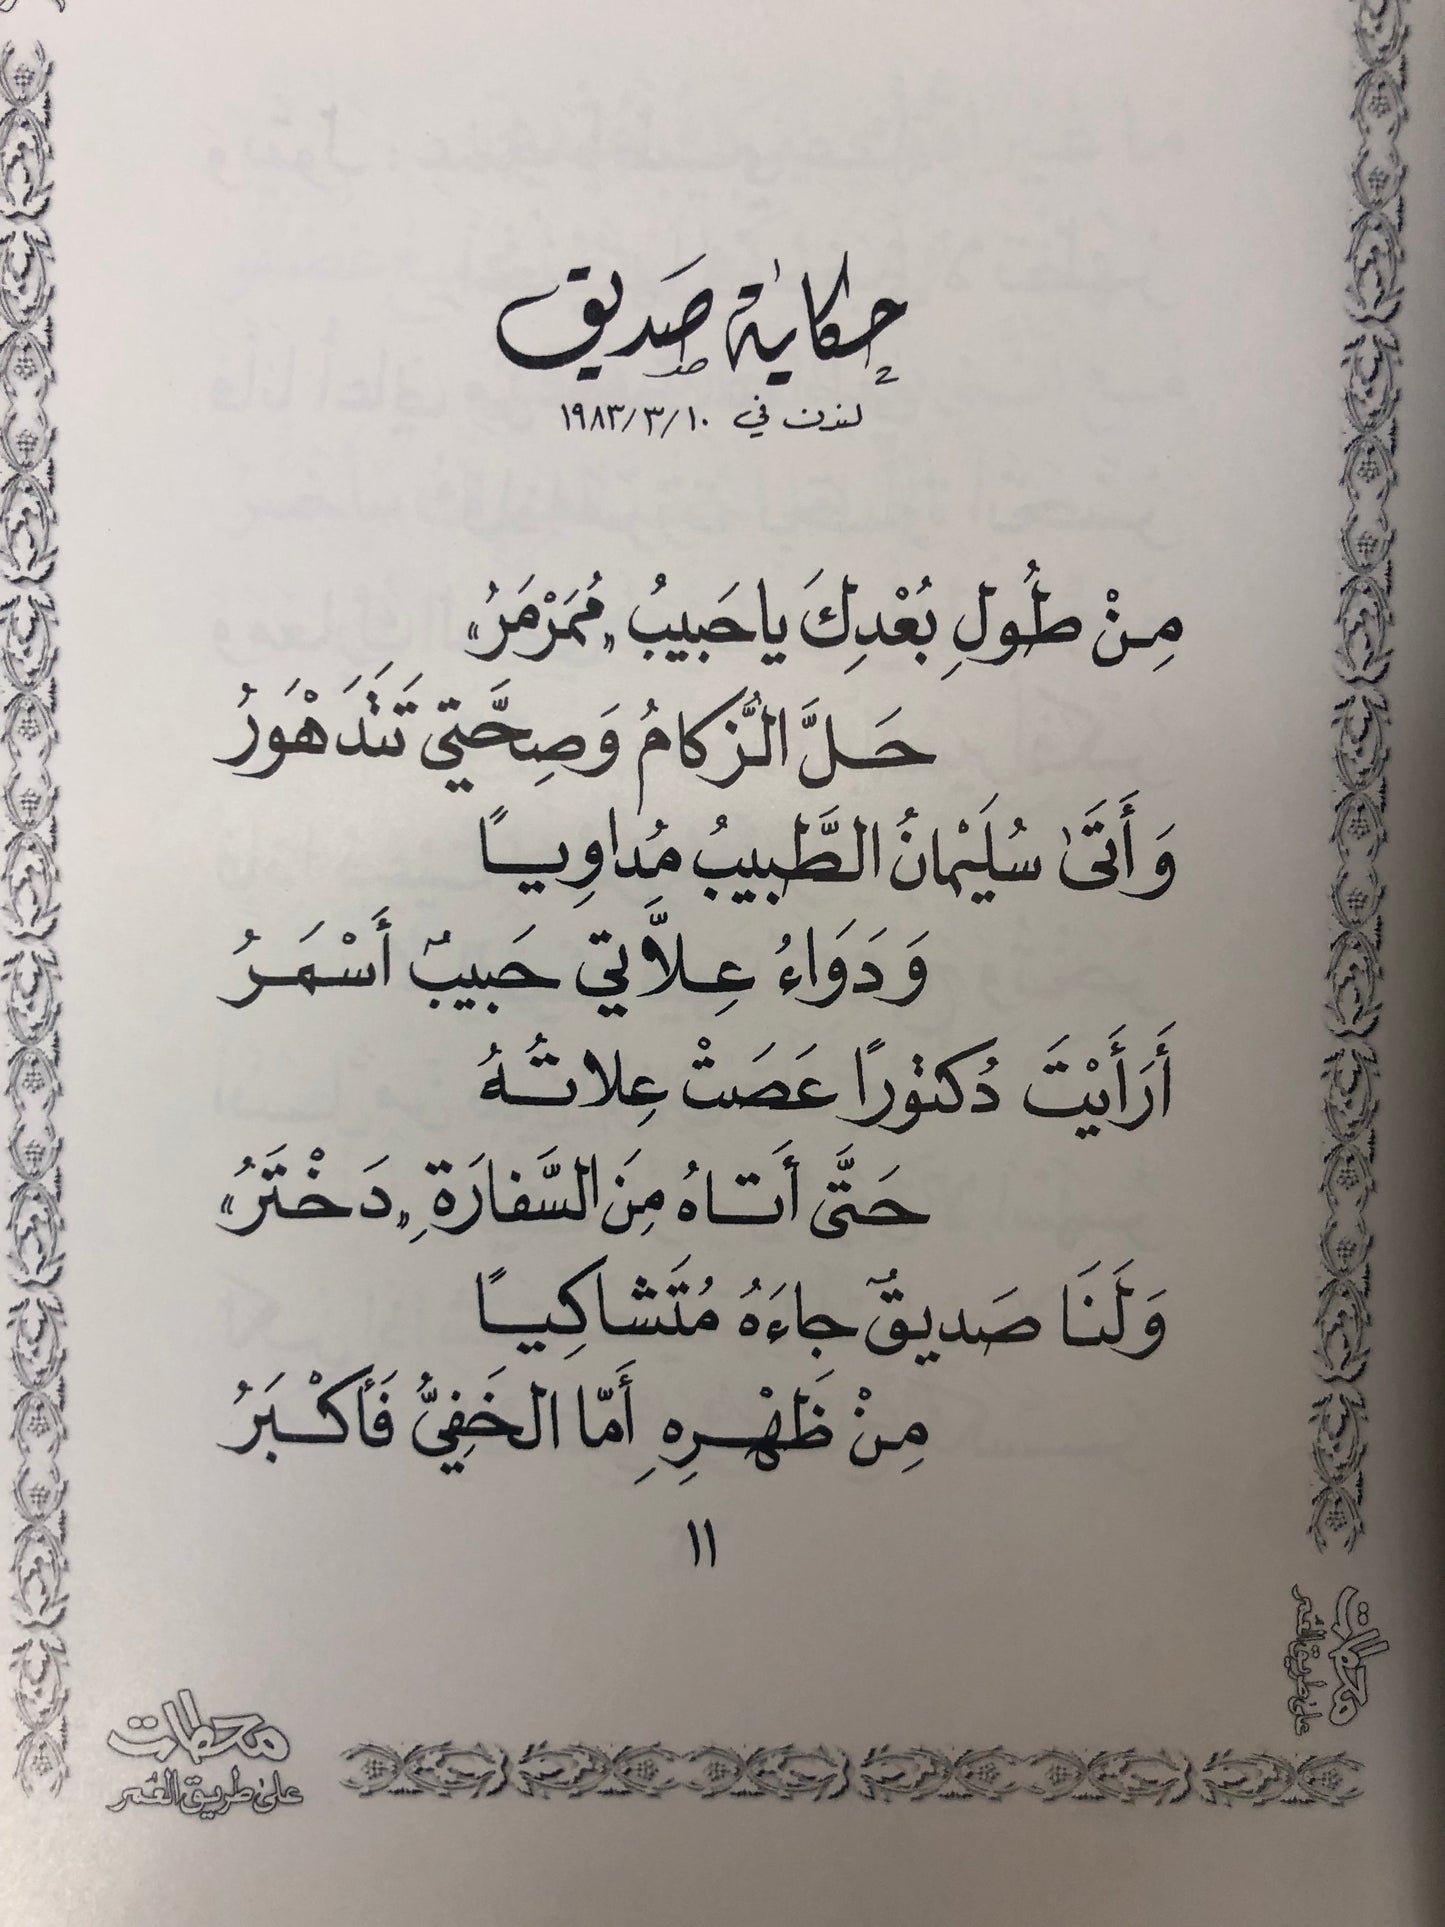 حكاية صديق
لندن في ١٩٨٣/٣/١٠
مِنْ طُولِ بُعْدِكَ ياحَبيبُ «مُمَرْمَرُ»
حَلَّ الزُّكامُ وَصِحَّتي تَتَدَهْوَرُ
وَأَتَىٰ سُلَيْمانُ الطَّبيبُ مُداوِيــاً
وَدَوَاءُ عِلاَّتي حَبيبٌ أَسْمَرُ
أَرَأَيْتَ دُكتوراً عَصَتْ عِلاتُهُ
حَتَّى أَتــاهُ مِنَ السَّفارَةِ «دَخْتَرُ»
وَلَنَا صَديقٌ جاءَهُ مُتَشاكِيــاً
مِنْ ظَهْرِهِ أَمّا الخَفِيُّ فَأكْبَرُ
١١
محطات
على طريق العُمر
محطات
على طريق العُمر